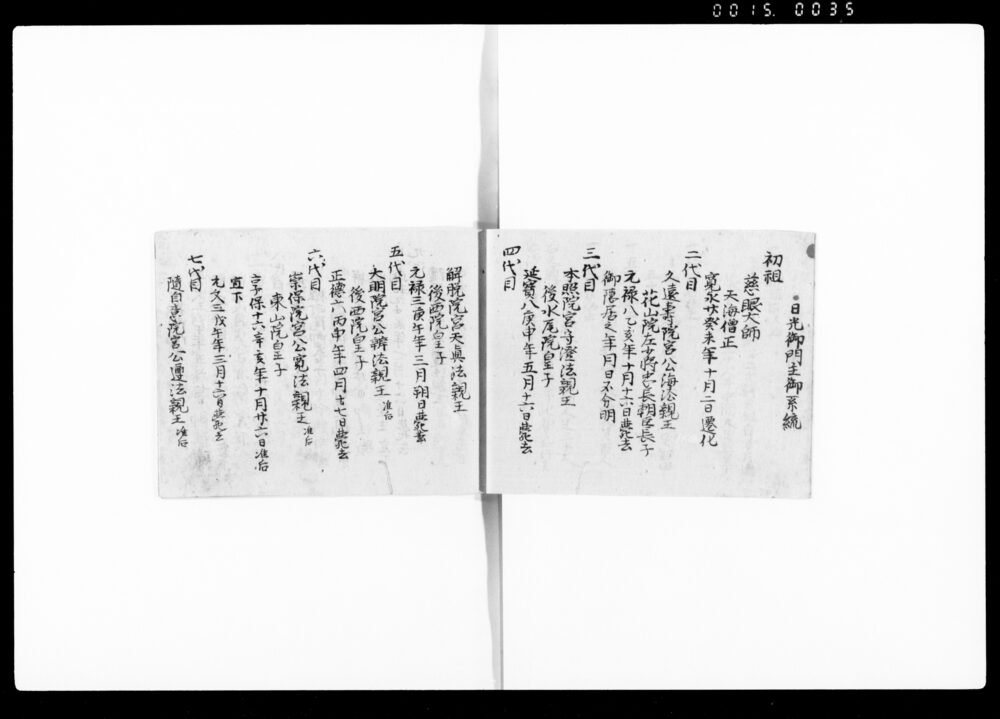 0015. 0035
日光御門主御系統
初祖
慈眼大師
天海僧正
寛永廿癸未年十月二日遷化
二代目
久遠壽院宮公海法親王
花山院左少将忠長朝臣長子
元禄八乙亥年十月十六日薨去
御隠居之年月日不分明
三代目
本照院宮守澄法親王
後水尾院皇子
延寶八庚申年五月十六日薨去
四代目
解脱院宮天眞法親王
後西院皇子
元禄三庚午年三月朔日薨去
五代目
大明院宮公辨法親王 准后
後西院皇子
正徳六丙申年四月十七日薨去
六代目
崇保院宮公寛法親王 准后
東山院皇子
享保十六辛亥年十月廿六日准后
宣下
元文三戊午年三月十六日薨去
七代目
隨自意院宮公遵法親王 准后